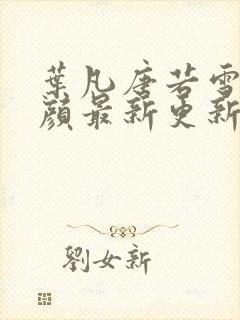 葉凡唐若雪
顏最新更新
劉女新